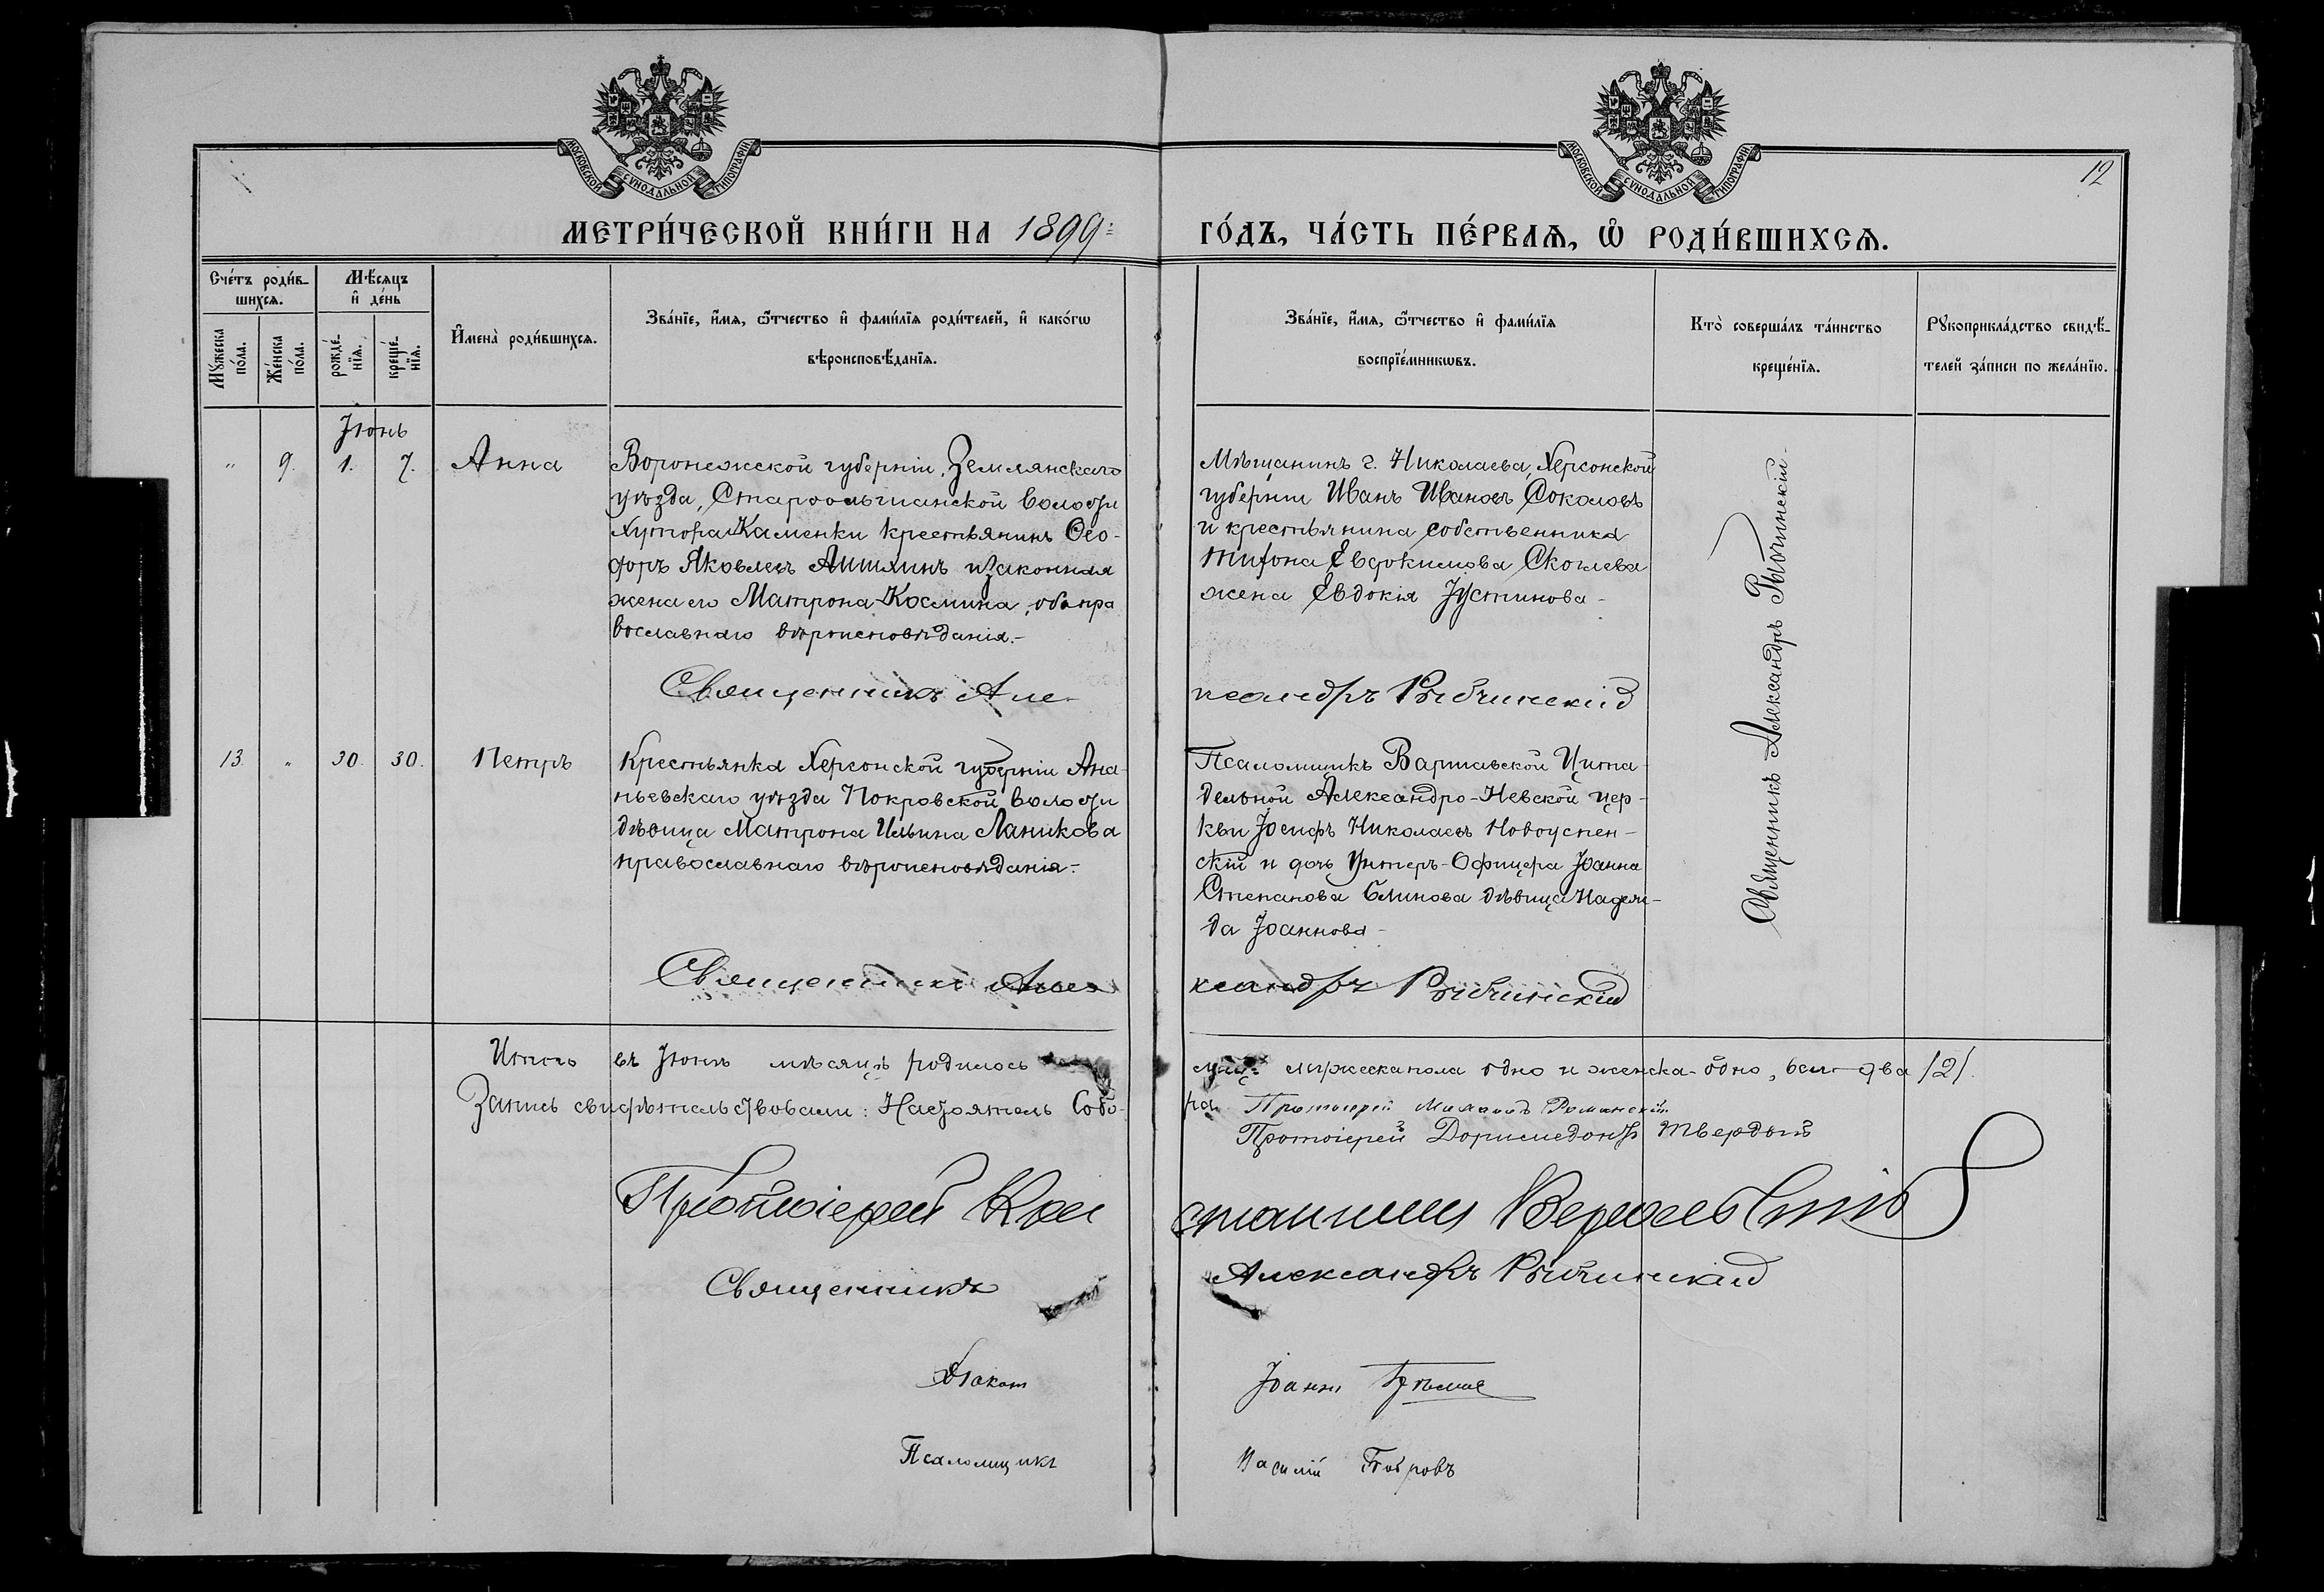 МОСКОВСКОЙ СѴНОДАЛЬНОЙ ТИПОГРАФІИ
МОСКОВСКОЙ СѴНОДАЛЬНОЙ ТИПОГРАФІИ
12
МЕТРИ́ЧЕСКОЙ КНИ́ГИ НА 1899
ГО́ДЪ, ЧА́СТЬ ПЕ́РВАѦ, Ѡ҆ РОДИ́ВШИХСѦ.
Сче́тъ роди́в-
шихсѧ.
Мꙋ́жеска
по́ла.
Же́нска
по́ла.
Мѣ́сѧцъ
и҆ де́нь
рожде́-
нїѧ.
креще́-
нїѧ.
И҆мена̀ роди́вшихсѧ.
Зва́нїе, и҆́мѧ, ѻ҆́тчество и҆ фами́лїѧ роди́телей, и҆ како́гѡ
вѣроисповѣ́данїѧ.
Зва́нїе, и҆́мѧ, ѻ҆́тчество и҆ фами́лїѧ
воспрїе́мникѡвъ.
Кто̀ соверша́лъ та́инство
креще́нїѧ.
Рꙋкоприкла́дство свидѣ́-
телей за́писи по жела́нїю.
Іюнь
" 9. 1. 7. Анна
Воронежской губерніи, Землянскаго
уѣзда, Староольшанской волости
хутора Каменки крестьянинъ Ѳео-
доръ Яковлевъ и законная
жена его Матрона Космина, оба пра
вославнаго вѣроисповѣданія.-
Мѣщанинъ г. Николаева, Херсонской
губерніи Иванъ Ивановъ Соколовъ
и крестьянина собственника
Евдокимова
жена Евдокія Іустинова-
Священникъ Александръ Рыбчинскій
Священникъ Але-
ксандръ Рыбчинскій
13. " 30. 30. Петръ
Крестьянка Херсонской губерніи Ана-
ньевскаго уѣзда Покровской волости
дѣвица Матрона Ильина
православнаго вѣроисповѣданія.-
Псаломщикъ Варшавской Цита-
дельной Александро-Невской цер-
кви Іосифъ Николаевъ Новоуспен-
скій и дочь Унтеръ-Офицера Іоанна
Степанова Блинова дѣвица Надеж-
да Іоаннова-
Священникъ Алек
ксандръ Рыбчинскій
Итого въ Іюнѣ мѣсяцѣ родилось
мужеска пола одно и женска-одно, всего-два /2/.
Запись свидѣтельствовали: Настоятель Собо-
ра Протоіерей
Протоіерей Доримедонтъ Твердый
Протоіерей Кон
стантинъ
Священникъ
Александръ Рыбчинскій
Діаконъ
Іоаннъ
Псаломщикъ
Василій